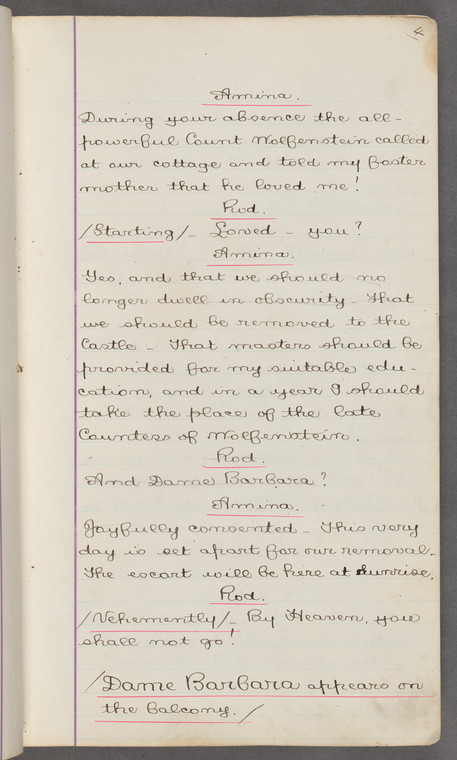 4
Amina.
During your absence the all-
powerful Count Wolfenstein called
at our cottage and told my foster
mother that he loved me!
Rod.
/Starting/ - Loved - you?
Amina.
Yes, and that we should no
longer dwell in obscurity - That
we should be removed to the
Castle - That masters should be
provided for my suitable edu-
cation, and in a year I should
take the place of the late
Countess of Wolfenstein.
Rod.
And Dame Barbara?
Amina.
Joyfully consented - This very
day is set apart for our removal.
The escort will be here at sunrise.
Rod.
/Vehemently/ - By Heaven, you
shall not go!
/Dame Barbara appears on
the balcony./